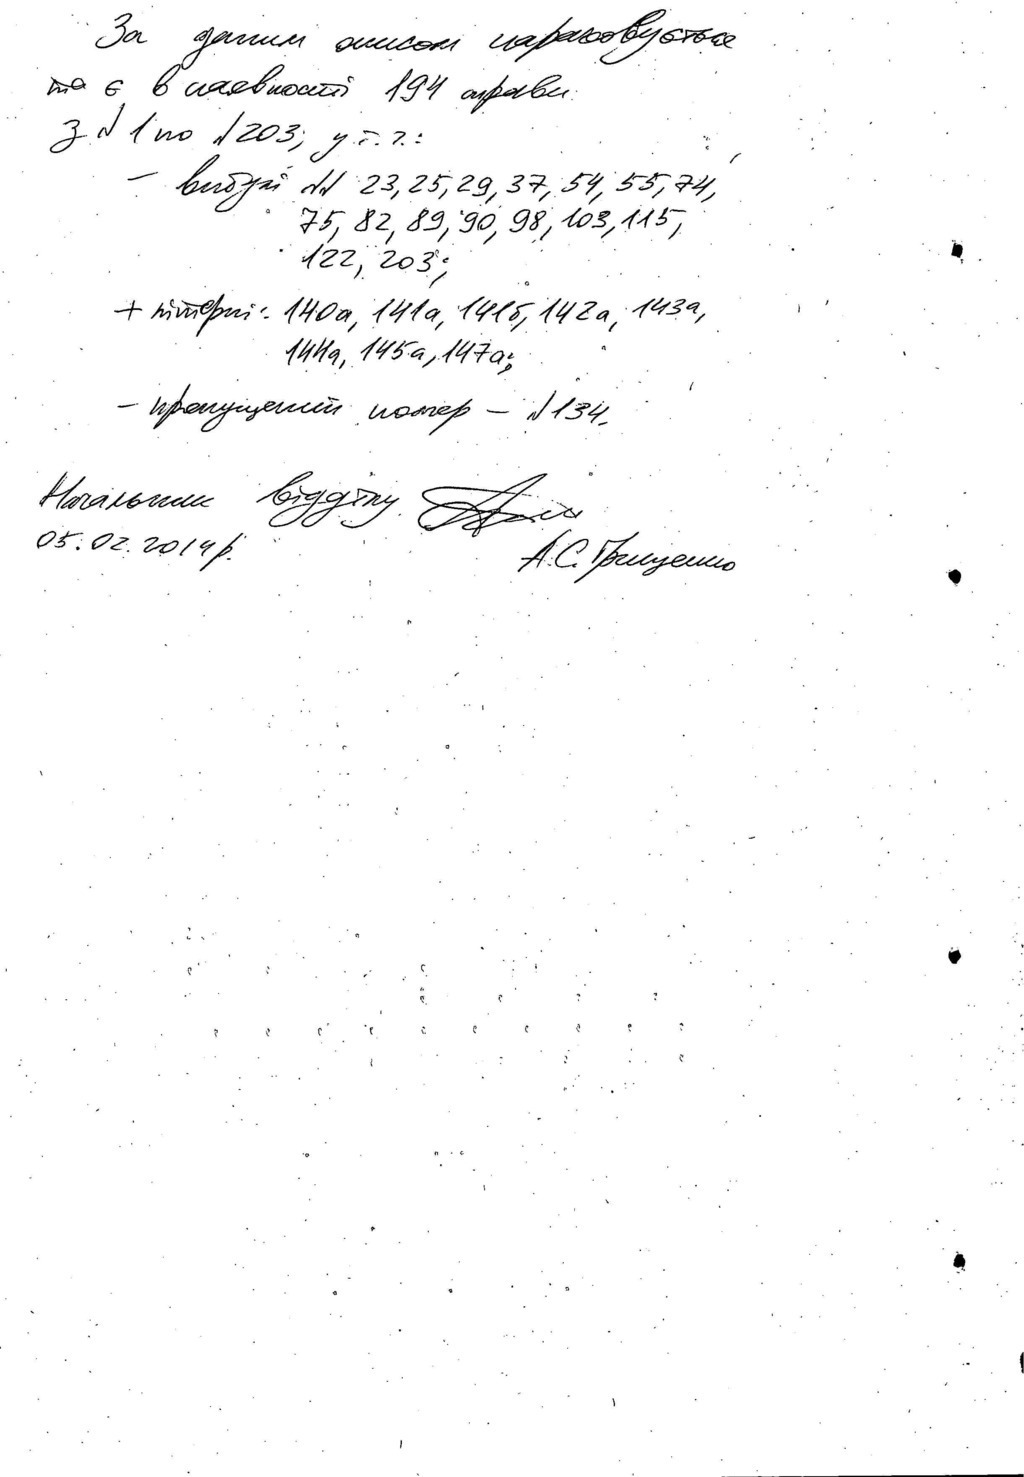 За даним описом нараховується
та є в наявності 194 справи
з № 1 по № 203, у т. ч.:
– вибулі №№ 23, 25, 29, 37, 54, 55, 74,
75, 82, 89, 90, 98, 103, 115,
122, 203;
+ літерні: 140а, 141а, 141б, 142а, 143а,
144а, 145а, 147а;
– пропущений номер – № 134.
Начальник відділу
05.02.2014 р.
А.С. Грищенко